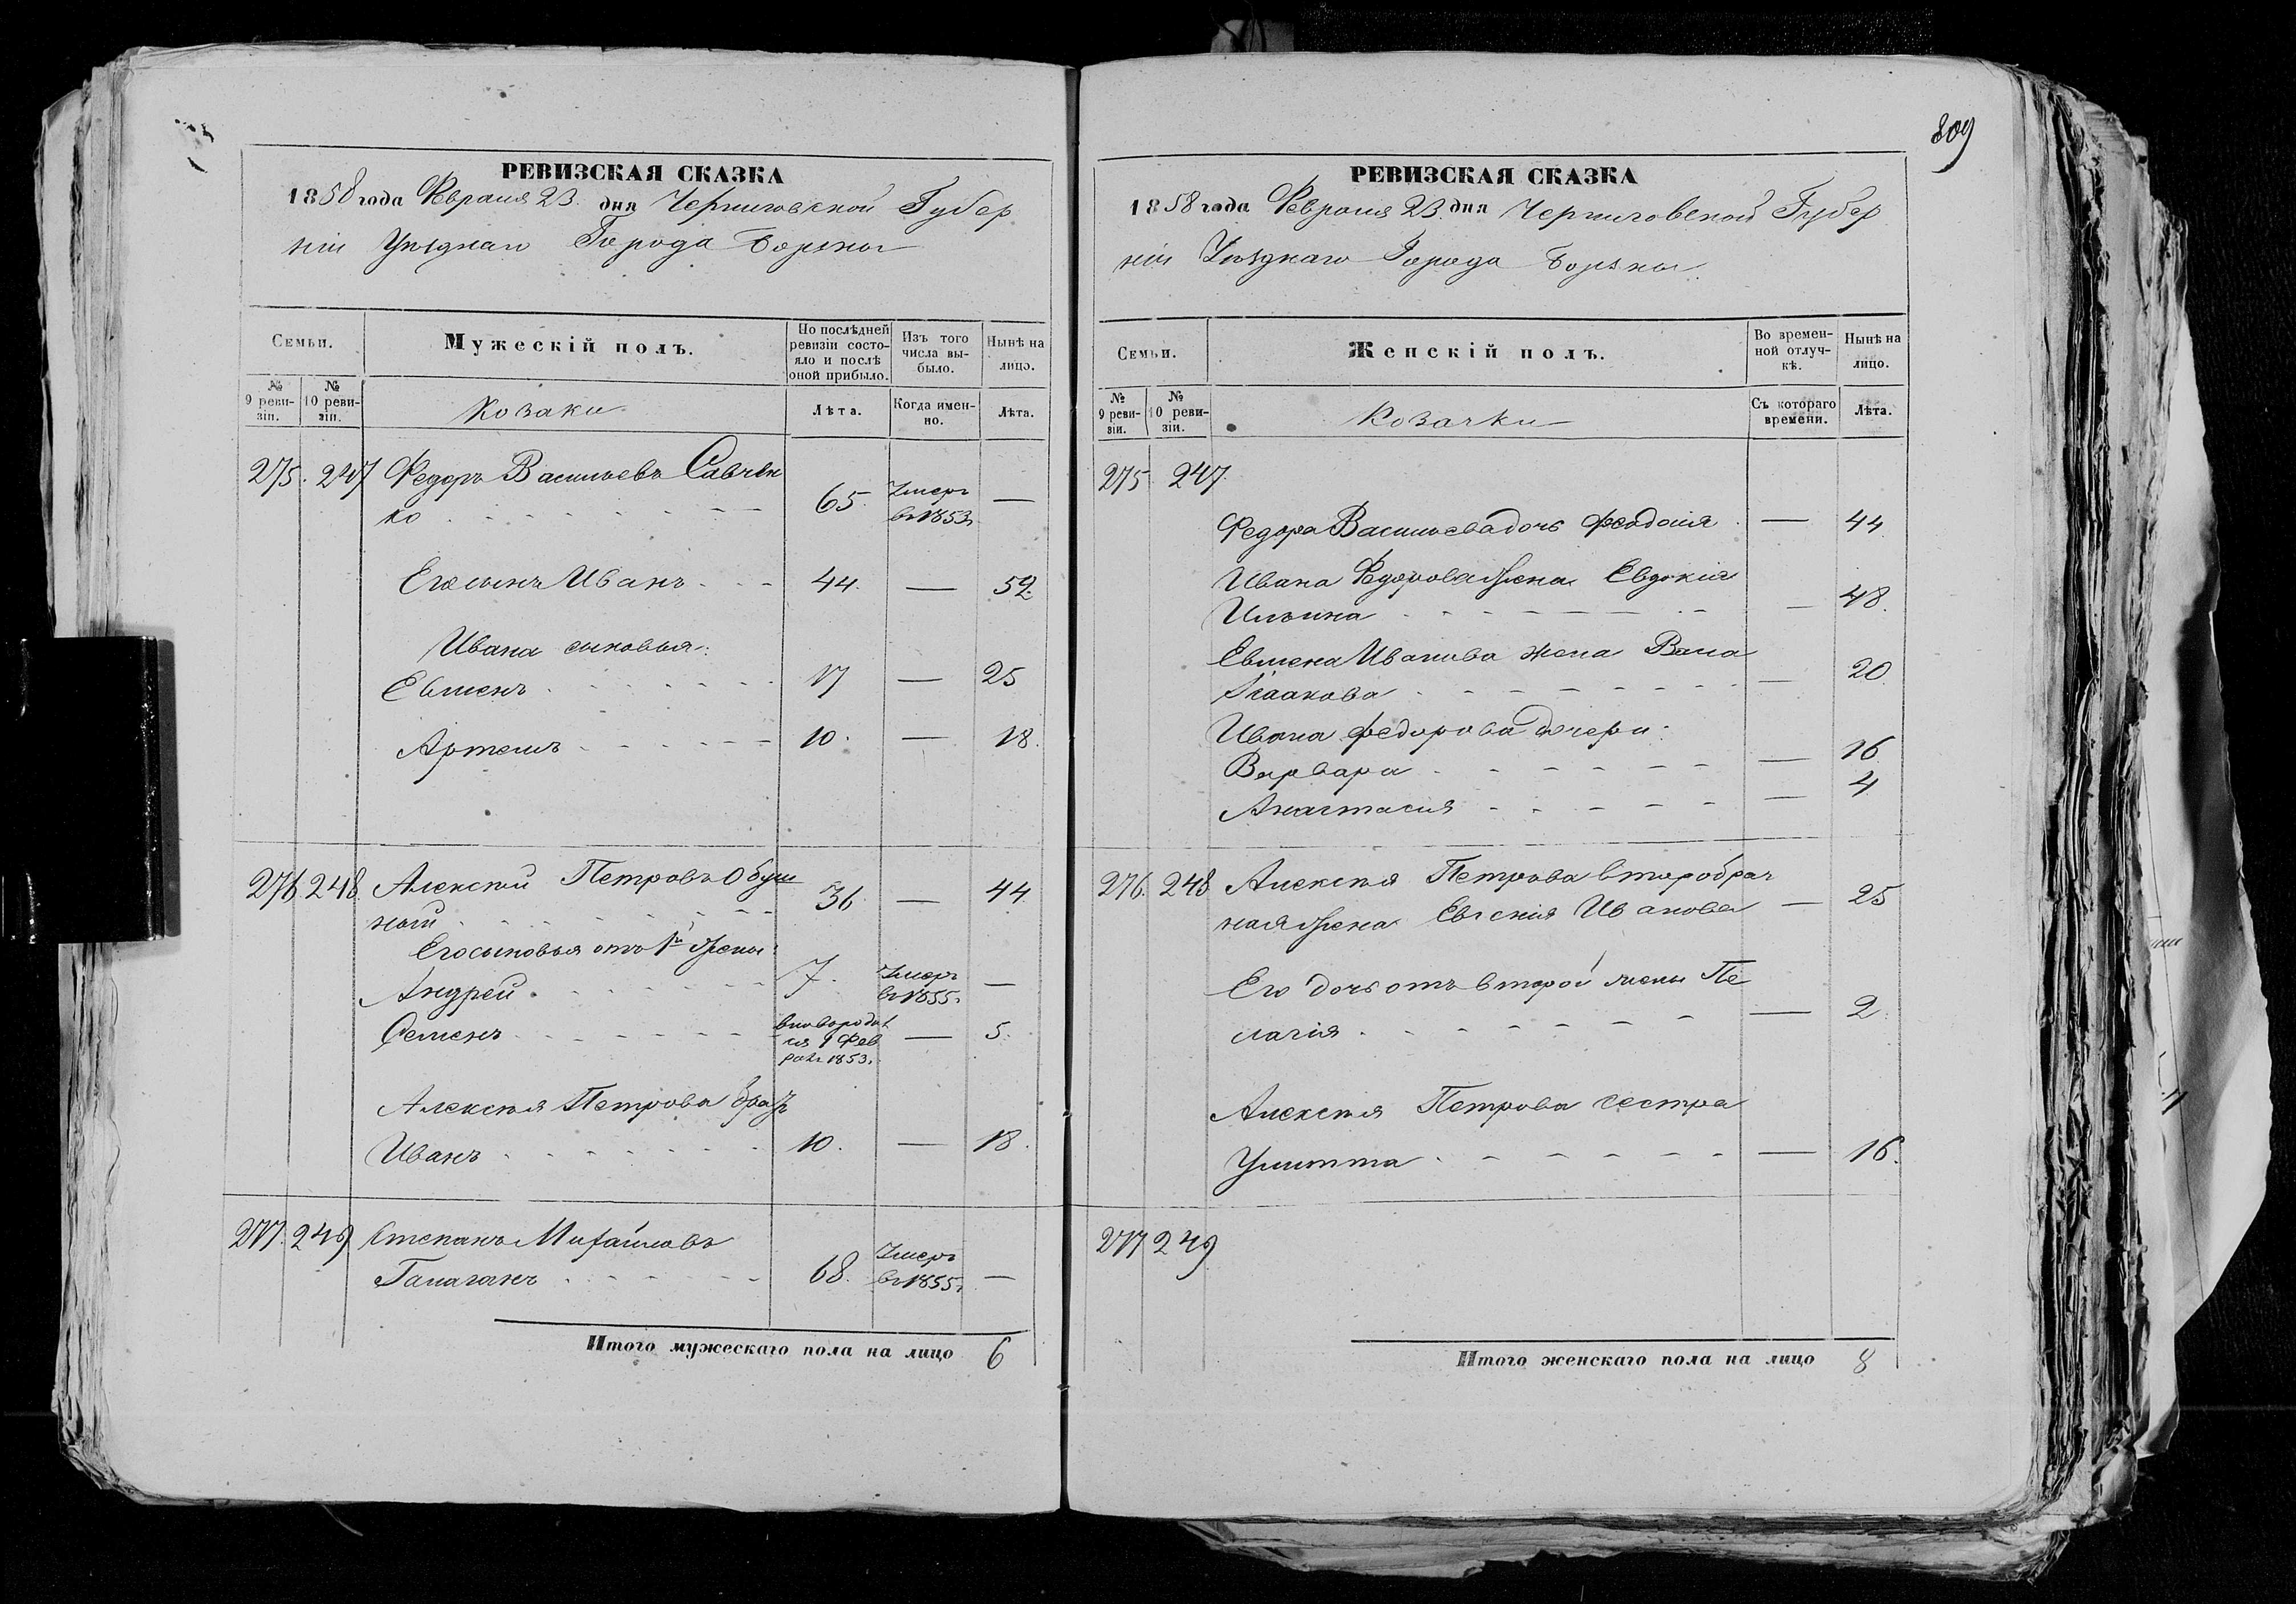 809
РЕВИЗСКАЯ СКАЗКА
1858 года Февраля 23. дня Черниговской Губер
ніи Уѣзднаго Города Борзны
Семьи.
Мужескій полъ.
По послѣдней ревизіи состояло и послѣ оной прибыло.
Изъ того числа выбыло.
Нынѣ на лицо.
№ 9 ревизіи.
№ 10 ревизіи.
Козаки
Лѣта.
Когда именно.
Лѣта.
275. 247 Федоръ Васильевъ Савчен
ко 65. Умеръ въ 1853г —
Его сынъ Иванъ 44. — 52.
Ивана сыновья:
Евменъ 17 — 25
Артемъ 10. — 18.
276. 248. Алексѣй Петровъ Обуш
ный 36 — 44
Его сыновья отъ 1й жены:
Андрей 7. Умеръ въ 1855г. —
Семенъ вновородил
ся 1 Фев
рал. 1853. — 5.
Алексѣя Петрова братъ
Иванъ 10. — 18.
277. 249 Степанъ Михайловъ
Галаганъ 68. Умеръ въ 1855г —
Итого мужескаго пола на лицо 6
РЕВИЗСКАЯ СКАЗКА
1858 года Февраля 23. дня Черниговской Губер
ніи Уѣзднаго Города Борзны.
Семьи.
Женскій полъ.
Во временной отлучкѣ.
Нынѣ на лицо.
№ 9 ревизіи.
№ 10 ревизіи.
Козачки
Съ котораго времени.
Лѣта.
275 247.
Федора Васильева дочь Феодосія — 44
Ивана Федорова жена Евдокія
Ильина — 48.
Евмена Иванова жена
Исаакова — 20
Ивана Федорова дочери:
Варвара — 16
Анастасия — 4
276. 248 Алексѣя Петрова второбрач
ная жена Евгенія Иванова — 25
Его дочь отъ второй жены Пе
лагія — 2
Алексѣя Петрова сестра
Улитта — 16.
277 249
Итого женскаго пола на лицо 8